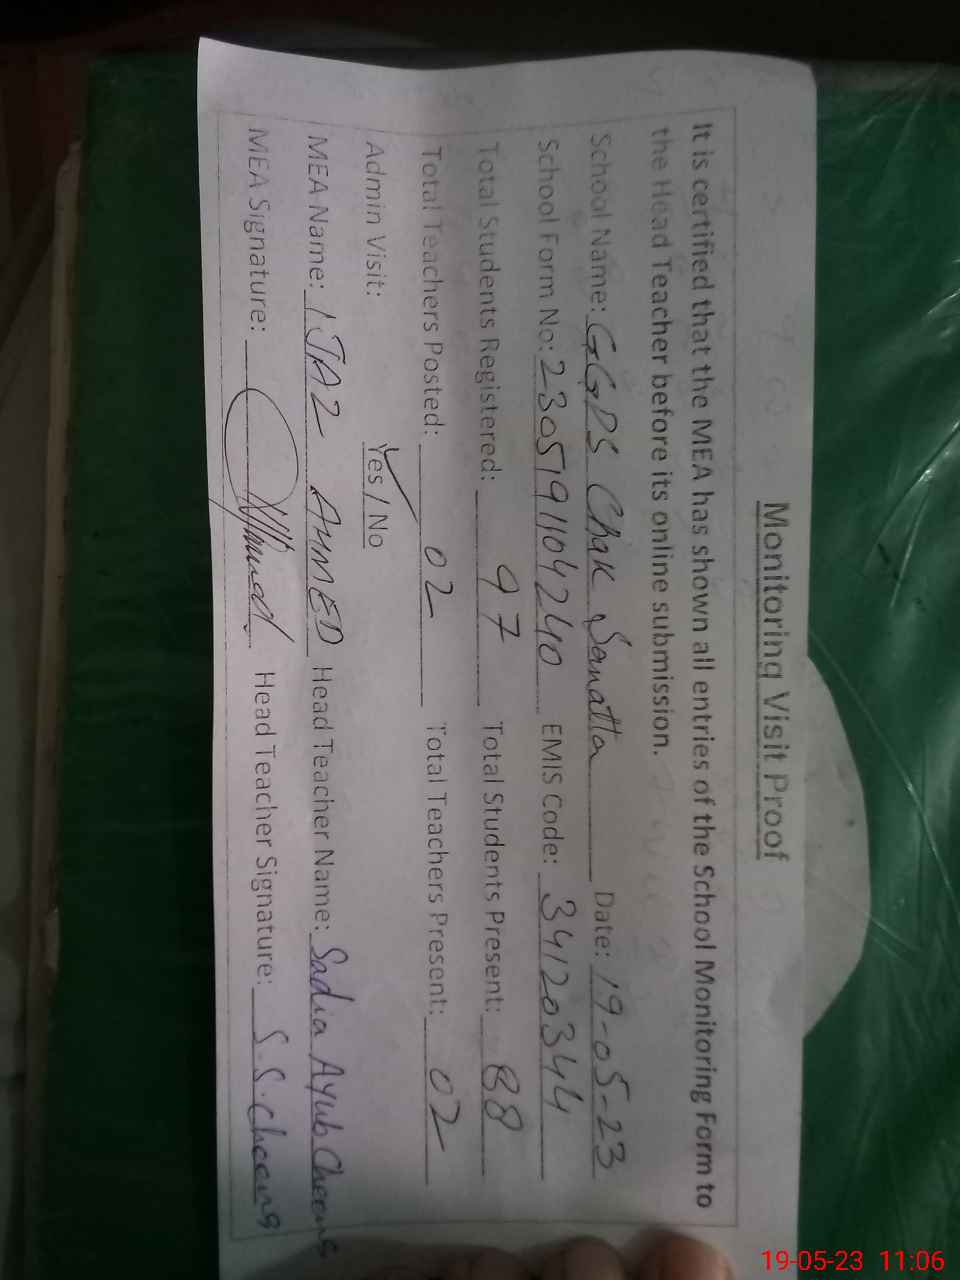 Monitoring Visit Proof
It is certified that the MEA has shown all entries of the School Monitoring Form to
the Head Teacher before its online submission.
School Name: GGPS Chak Sanatta Date: 19-05-23
School Form No: 2305191104240 EMIS Code: 34120344
Total Students Registered: 97 Total Students Present: 88
Total Teachers Posted: 02 Total Teachers Present: 02
Admin Visit: Yes / No
MEA Name: IJAZ AHMED Head Teacher Name: Sadia Ayub Cheema
MEA Signature: Ahmad Head Teacher Signature: S.S.Cheema
19-05-23 11:06